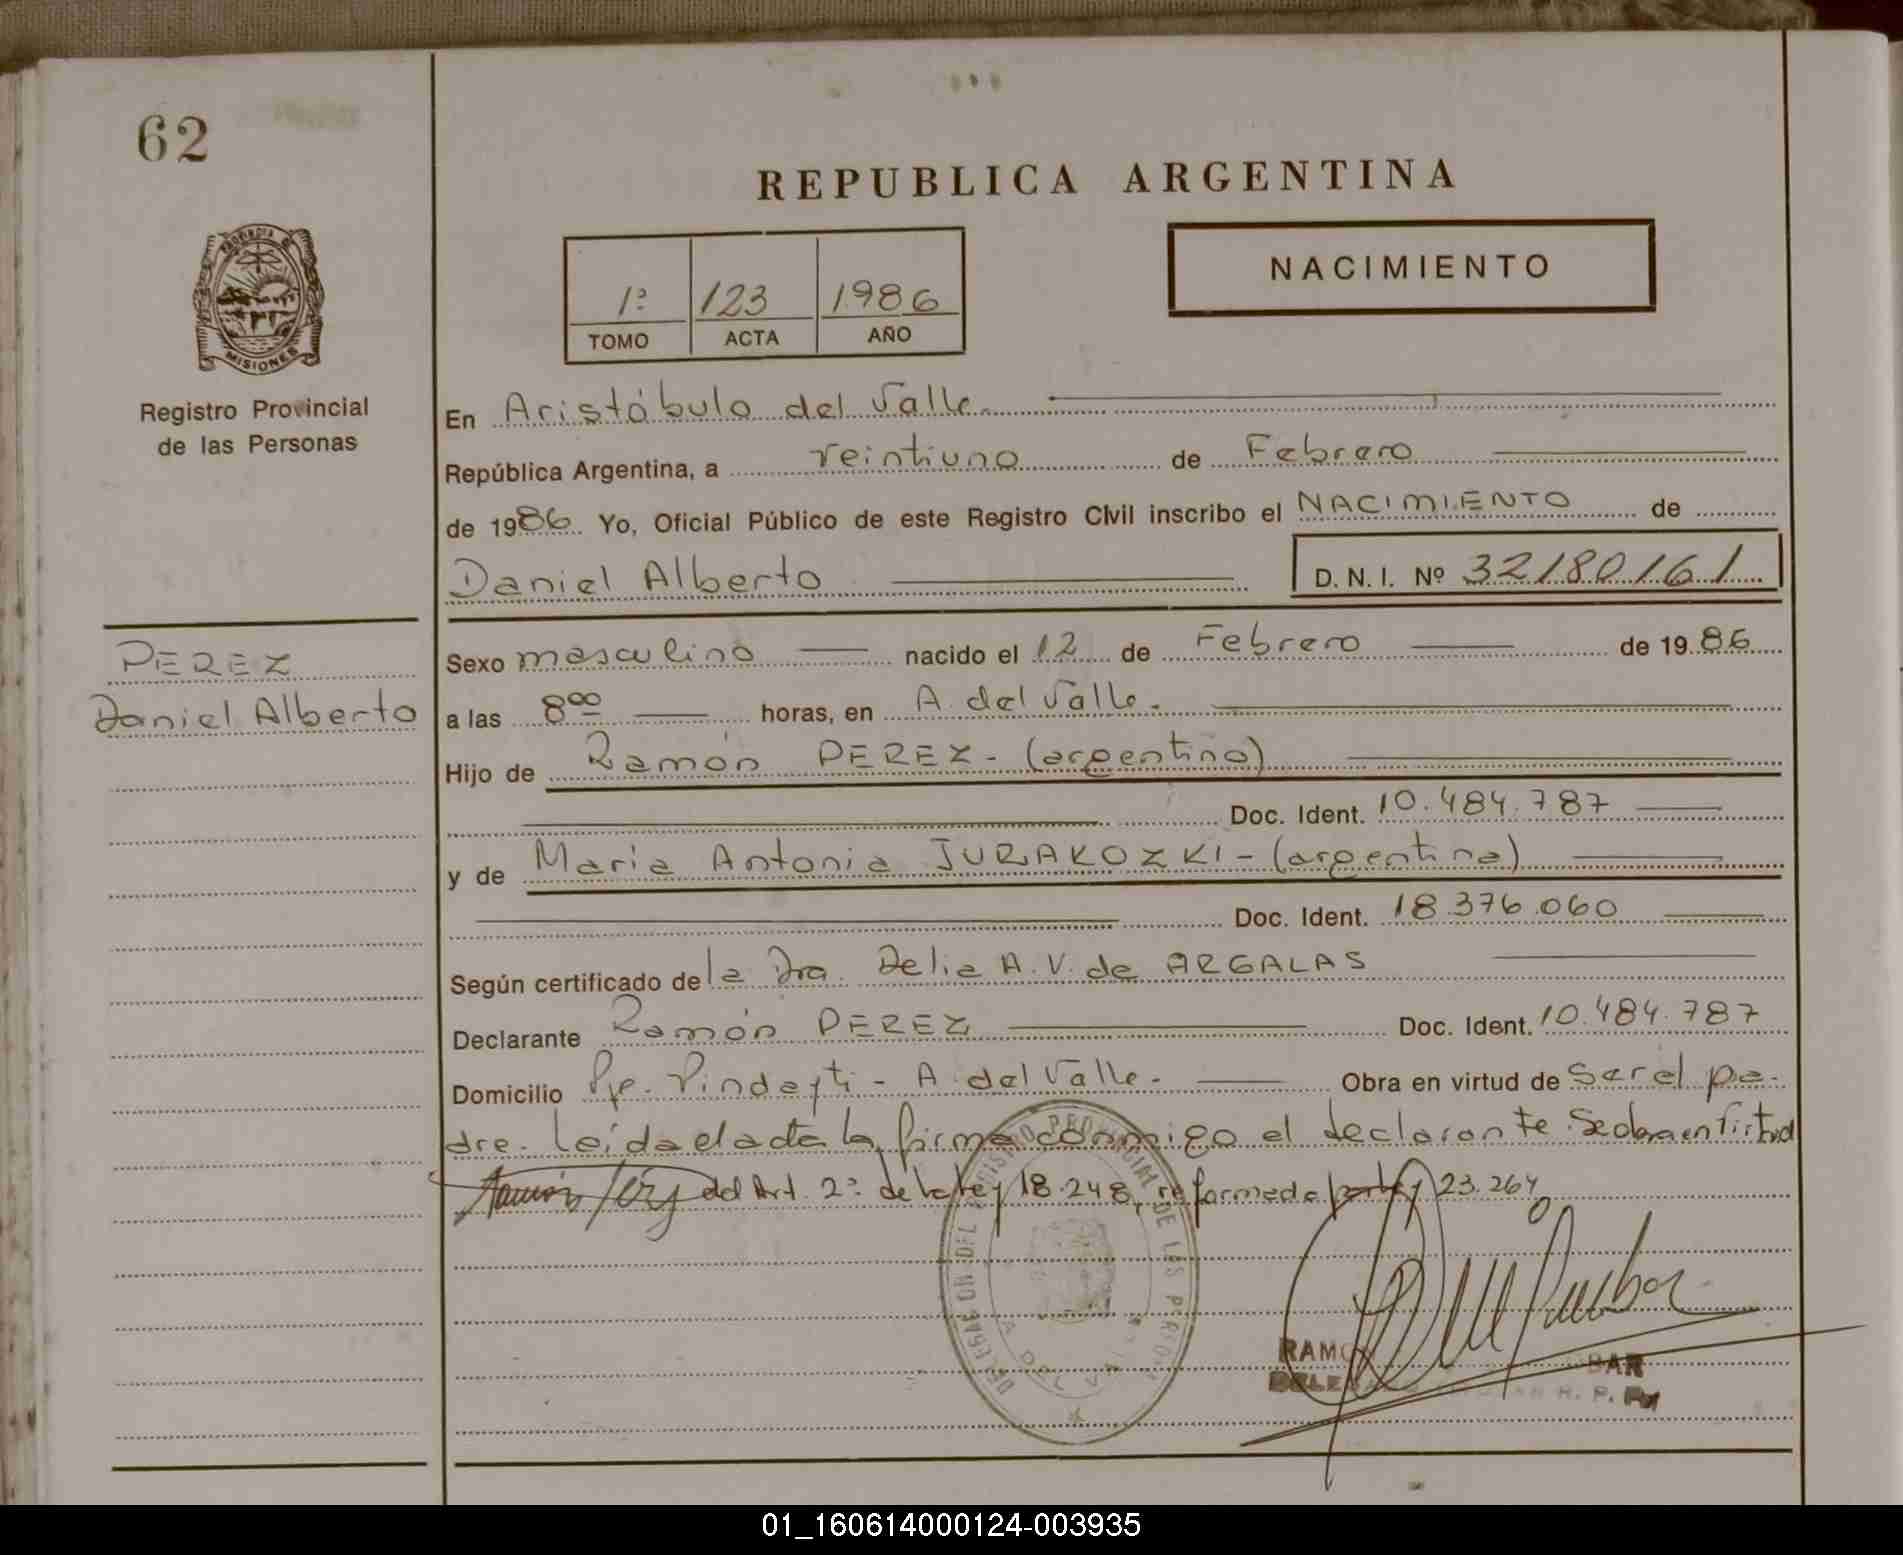 62
REPUBLICA ARGENTINA
NACIMIENTO
1º 123 1986
TOMO ACTA AÑO
PROVINCIA DE
MISIONES
Registro Provincial
de las Personas
En Aristóbulo del Valle.
República Argentina, a veintiuno de Febrero
de 1986. Yo, Oficial Público de este Registro Civil inscribo el NACIMIENTO de
Daniel Alberto D. N. I. Nº 32180161
PEREZ
Daniel Alberto
Sexo masculino nacido el 12 de Febrero de 1986
a las 8⁰⁰ horas, en A. del Valle.
Hijo de Ramón PEREZ - (argentino)
Doc. Ident. 10.484.787
y de María Antonia JURAKOZKI - (argentina)
Doc. Ident. 18.376.060
Según certificado de la Dra. Delia A. V. de ARGALAS
Declarante Ramón PEREZ Doc. Ident. 10.484.787
Domicilio Pje. Pindayti - A. del Valle. Obra en virtud de Ser el pa-
dre. Leída el acta la firma conmigo el declarante Se obra en virtud
Ramón Pérez del Art. 2º de la Ley 18.248, reformada por Ley 23.264
DELEGACION DEL REGISTRO PROVINCIAL DE LAS PERSONAS
A. DEL VALLE
R. P. P.
01_160614000124-003935